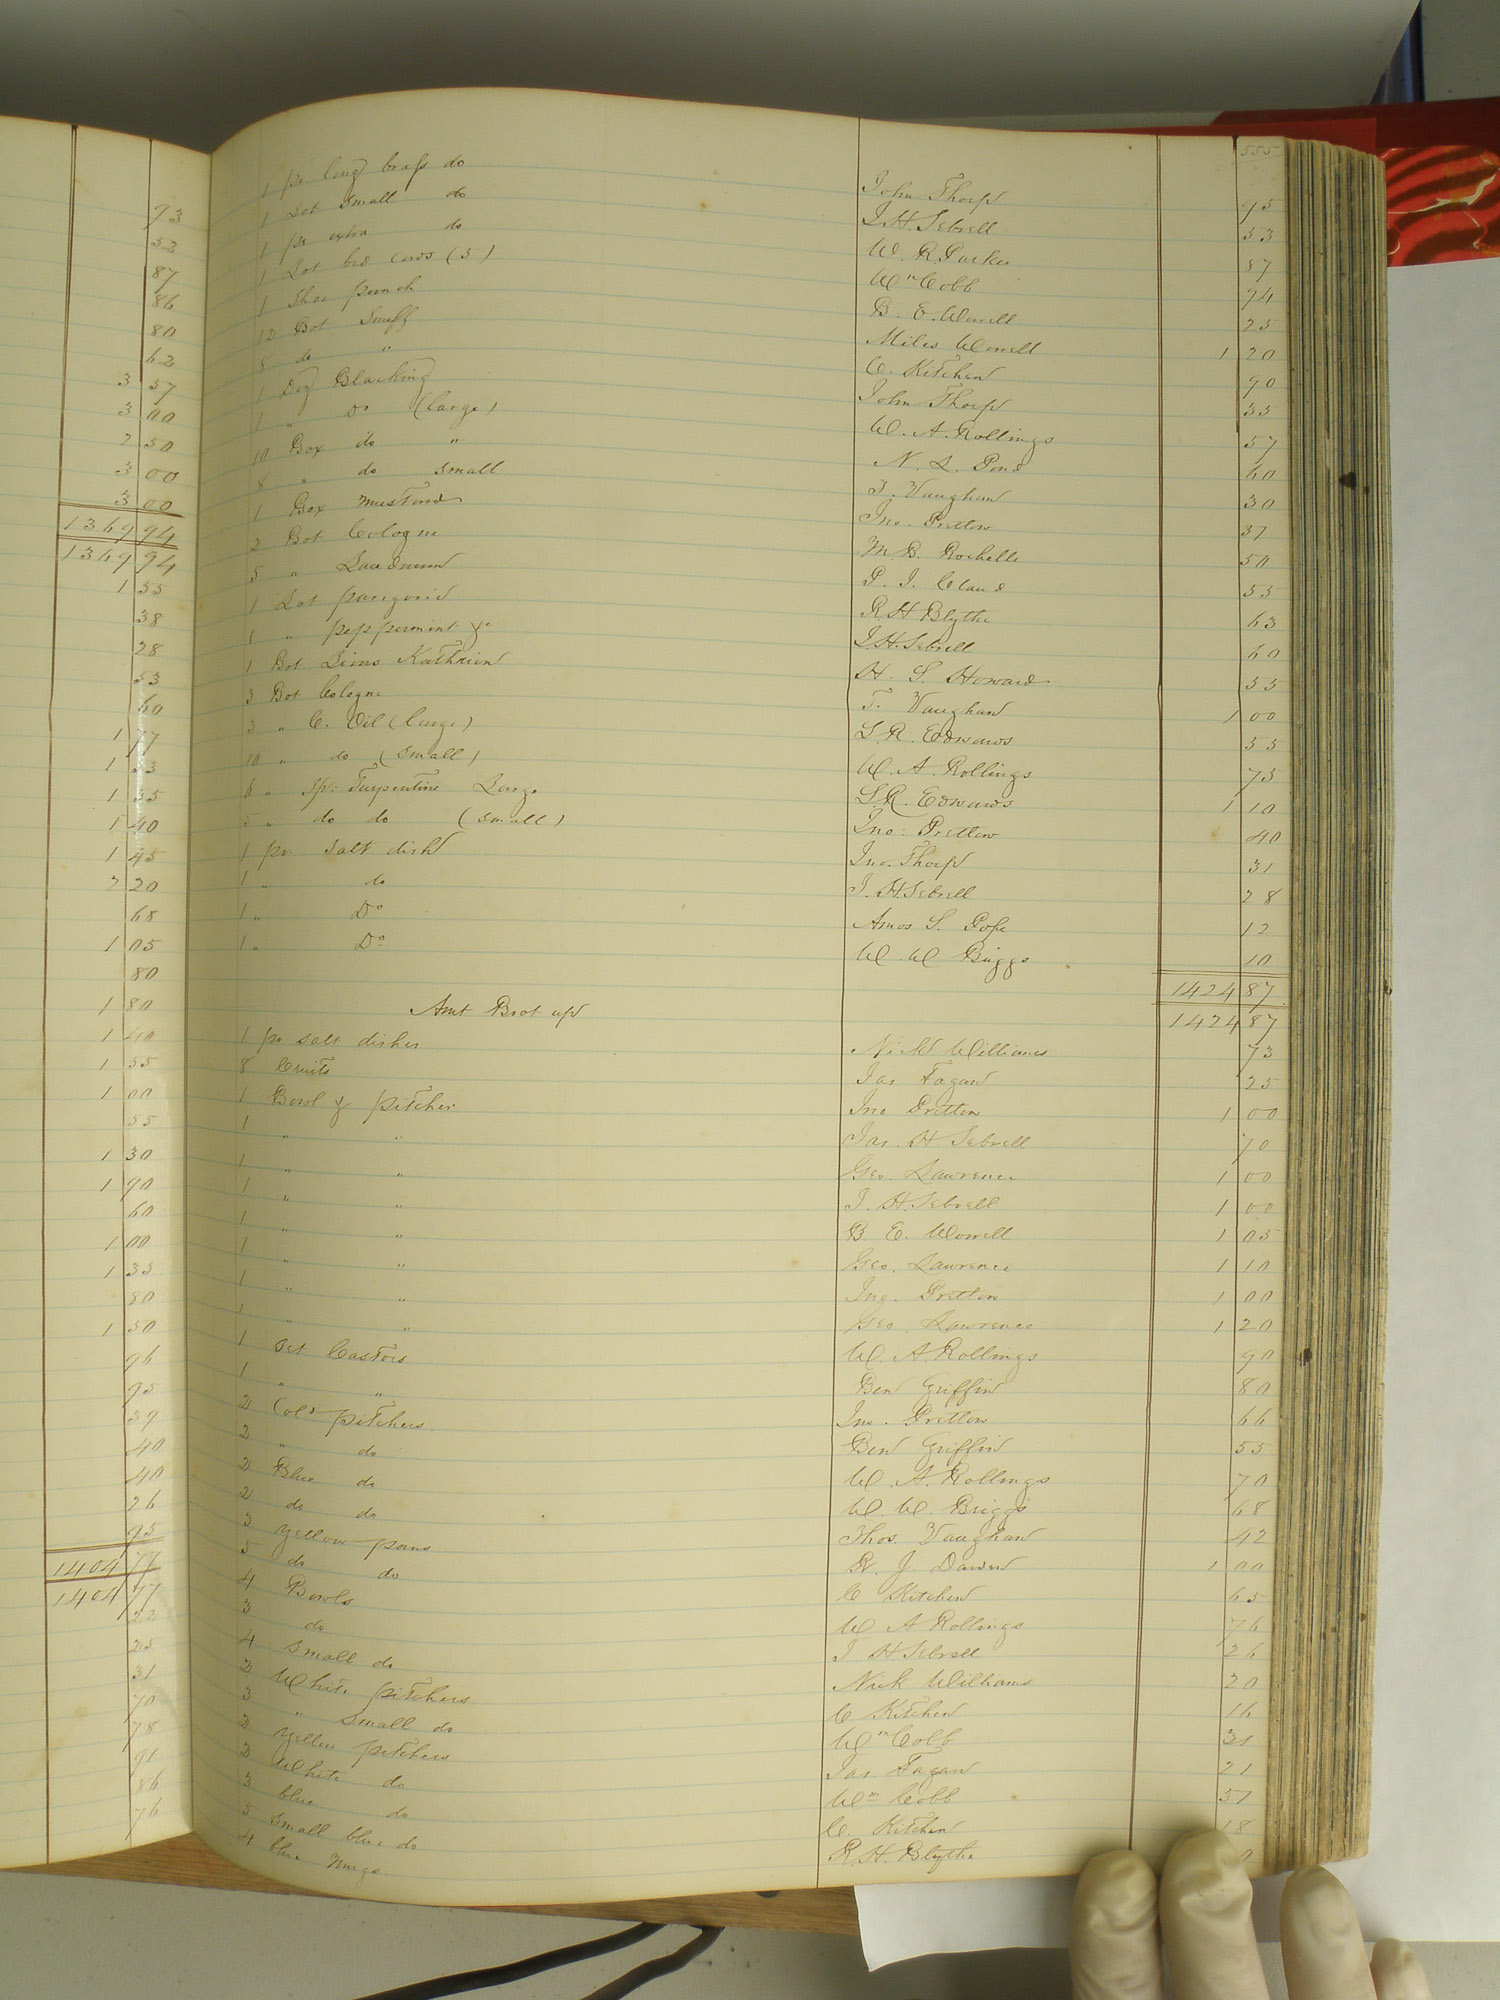 93
52
87
86
80
62
3 57
3 00
2 50
3 00
3 00
1369 94
1369 94
1 55
38
28
53
60
1 77
1 53
1 55
1 40
1 45
2 20
68
1 05
80
1 80
1 40
1 55
1 00
55
1 30
1 90
60
1 00
1 35
80
1 50
96
95
39
40
40
26
95
1404 77
1404 77
22
25
31
70
78
91
86
76
555
1 pr long brass do John Thorp 95
1 Lot small do J. H. Sebrell 53
1 pr extra do W. R. Parker 87
1 Lot bed cords (5) Wm Cobb 94
1 Shoe punch B. E. Worrell 25
12 Bot Snuff Miles Worrell 1 20
8 do " C. Kitchen 90
1 Doz Blacking John Thorp 35
1 " Do (large) W. A. Rollings 57
10 Box do " N. L. Pond 60
8 " do small T. Vaughan 30
1 Box mustard Jno. Pretlow 37
2 Bot Cologne M. B. Rochelle 50
5 " Laudnum P. J. Claud 55
1 Lot paregoric R H Blythe 63
1 " peppermint &c J. H. Sebrell 60
1 Bot Lions Kathrien H. S. Howard 55
3 Bot Cologne T. Vaughan 1 00
3 " C. Oil (large) S. R. Edwards 55
10 " do (small) W. A. Rollings 75
6 " Sp: Turpentine Large S. R. Edwards 1 10
5 " do do (small) Jno: Pretlow 40
1 pr salt dish Jno. Thorp 31
1 " do J. H. Sebrell 28
1 " Do Amos S. Pope 12
1 " Do W W Briggs 10
1424 87
Amt Brot up 1424 87
1 pr salt dishes Nick Williams 73
8 Cruits Jas Fagan 25
1 Bowl & pitcher Jno Pretlow 1 00
1 " " Jas. H. Sebrell 70
1 " " Geo. Lawrence 1 00
1 " " J. H. Sebrell 1 00
1 " " B. E. Worrell 1 05
1 " " Geo. Lawrence 1 10
1 " " Jno. Pretlow 1 00
1 " " Geo. Lawrence 1 20
1 Set Castors W. A. Rollings 90
1 " " Ben Griffin 80
2 Cold pitchers Jno. Pretlow 66
2 " do Ben Griffin 55
2 Blue do W. A. Rollings 70
2 do do W. W. Briggs 68
3 yellow pans Thos. Vaughan 42
5 do do 1 00
4 Bowls C Kitchen 65
3 do W A Rollings 76
4 small do J. H. Sebrell 26
2 White pitchers Nick Williams 20
3 " small do C Kitchen 16
2 yellow pitchers Wm Cobb 31
2 White do Jas. Fagan 21
3 blue do Wm Cobb 57
5 small blue do C. Kitchen 18
4 blue mugs R. H. Blythe